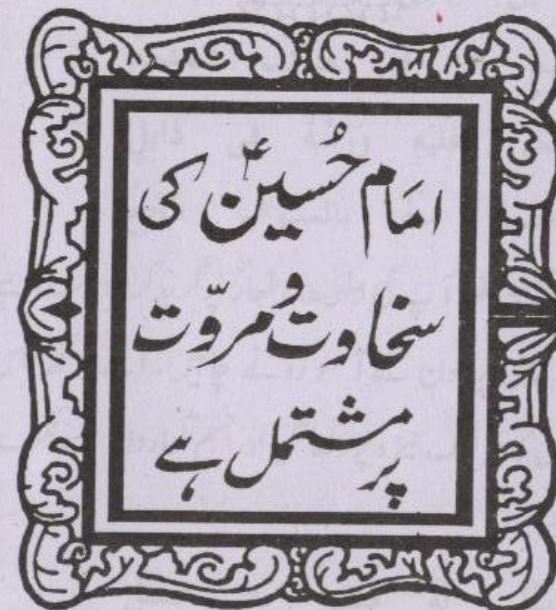 امام حُسینؑ کی
سخاوت و مروّت
پر مشتمل ہے